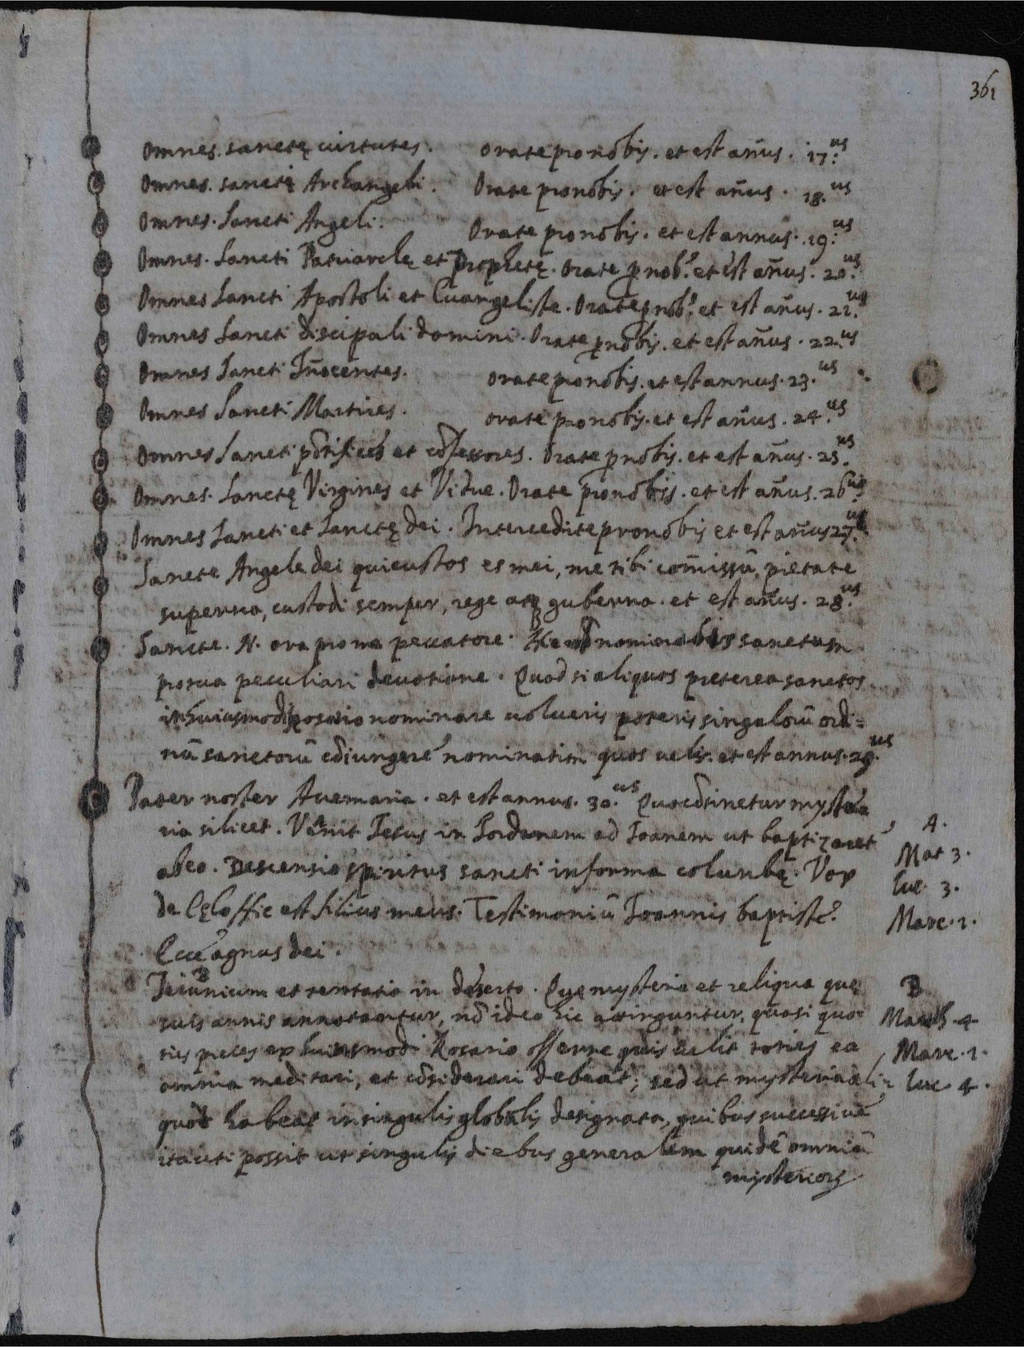 361
Omnes. sanctę uirtutes. orate pro nobis. et est an̄us. 17.us
Omnes. sanctę Archangeli. Orate pro nobis. et est an̄us. 18.us
Omnes. Sancti Angeli. Orate pro nobis. et est annus. 19.us
Omnes. Sancti Patriarchę et Prophetę. Orate p nob.s et est an̄us. 20.us
Omnes Sancti Apostoli et Euangeliste. Orate p nob.s et est an̄us. 21.us
Omnes Sancti discipuli domini. Orate p nobis. et est an̄us. 22.us
Omnes Sancti In̄ocentes. orate pro nobis. et est annus. 23.us
Omnes Sancti Martires. orate pro nobis. et est an̄us. 24.us
Omnes Sancti pōtifices et cōfessores. Orate p nobis. et est an̄us. 25.us
Omnes. Sanctę Virgines et Vidue. Orate pro nobis. et est an̄us. 26.us
Omnes Sancti et Sanctę dei. Intercedite pro nobis et est an̄us 27.us
Sancte Angele dei qui custos es mei, me tibi com̄issū, pietate
superna, custodi semper, rege atq guberna. et est an̄us. 28.us
Sancte. N. ora pro me peccatore. nominabis sanctum
pro tua peculiari deuotione. Quod si aliquos preterea sanctos
in huiusmodi Rosario nominare uolueris poteris singuloiū ordi=
nū sanctorū cōiungere nominatim quos uelis. et est annus. 29.us
Pater noster Aue maria. et est annus. 30.us Quo cōtinetur myste
ria silicet. Venit Iesus in Iordanem ad Ioanem ut baptizaret
A.
ab eo. Descensio spiritus sancti in forma columbę. Vox
Mat 3.
luc. 3.
de Cęlo hic est filius meus. Testimoniū Ioannis baptistę
Marc. 1.
Ecce agnus dei.
Ieiunium et tentatio in deserto. Quę mysteria et reliqua que
B
suis annis annotantur, nō ideo hic astinguntur, quasi quo
Matth. 4
ties preces ex huiusmodi Rosario offerre quis uelit toties ea
Marc. 1.
omnia meditari, et cōsiderari debeat; sed ut mysteria ali
luc 4.
quot habeat in singulis globulis designata, quibus successiue
ita uti possit ut singulis diebus generalem quidē omniū
mysterior